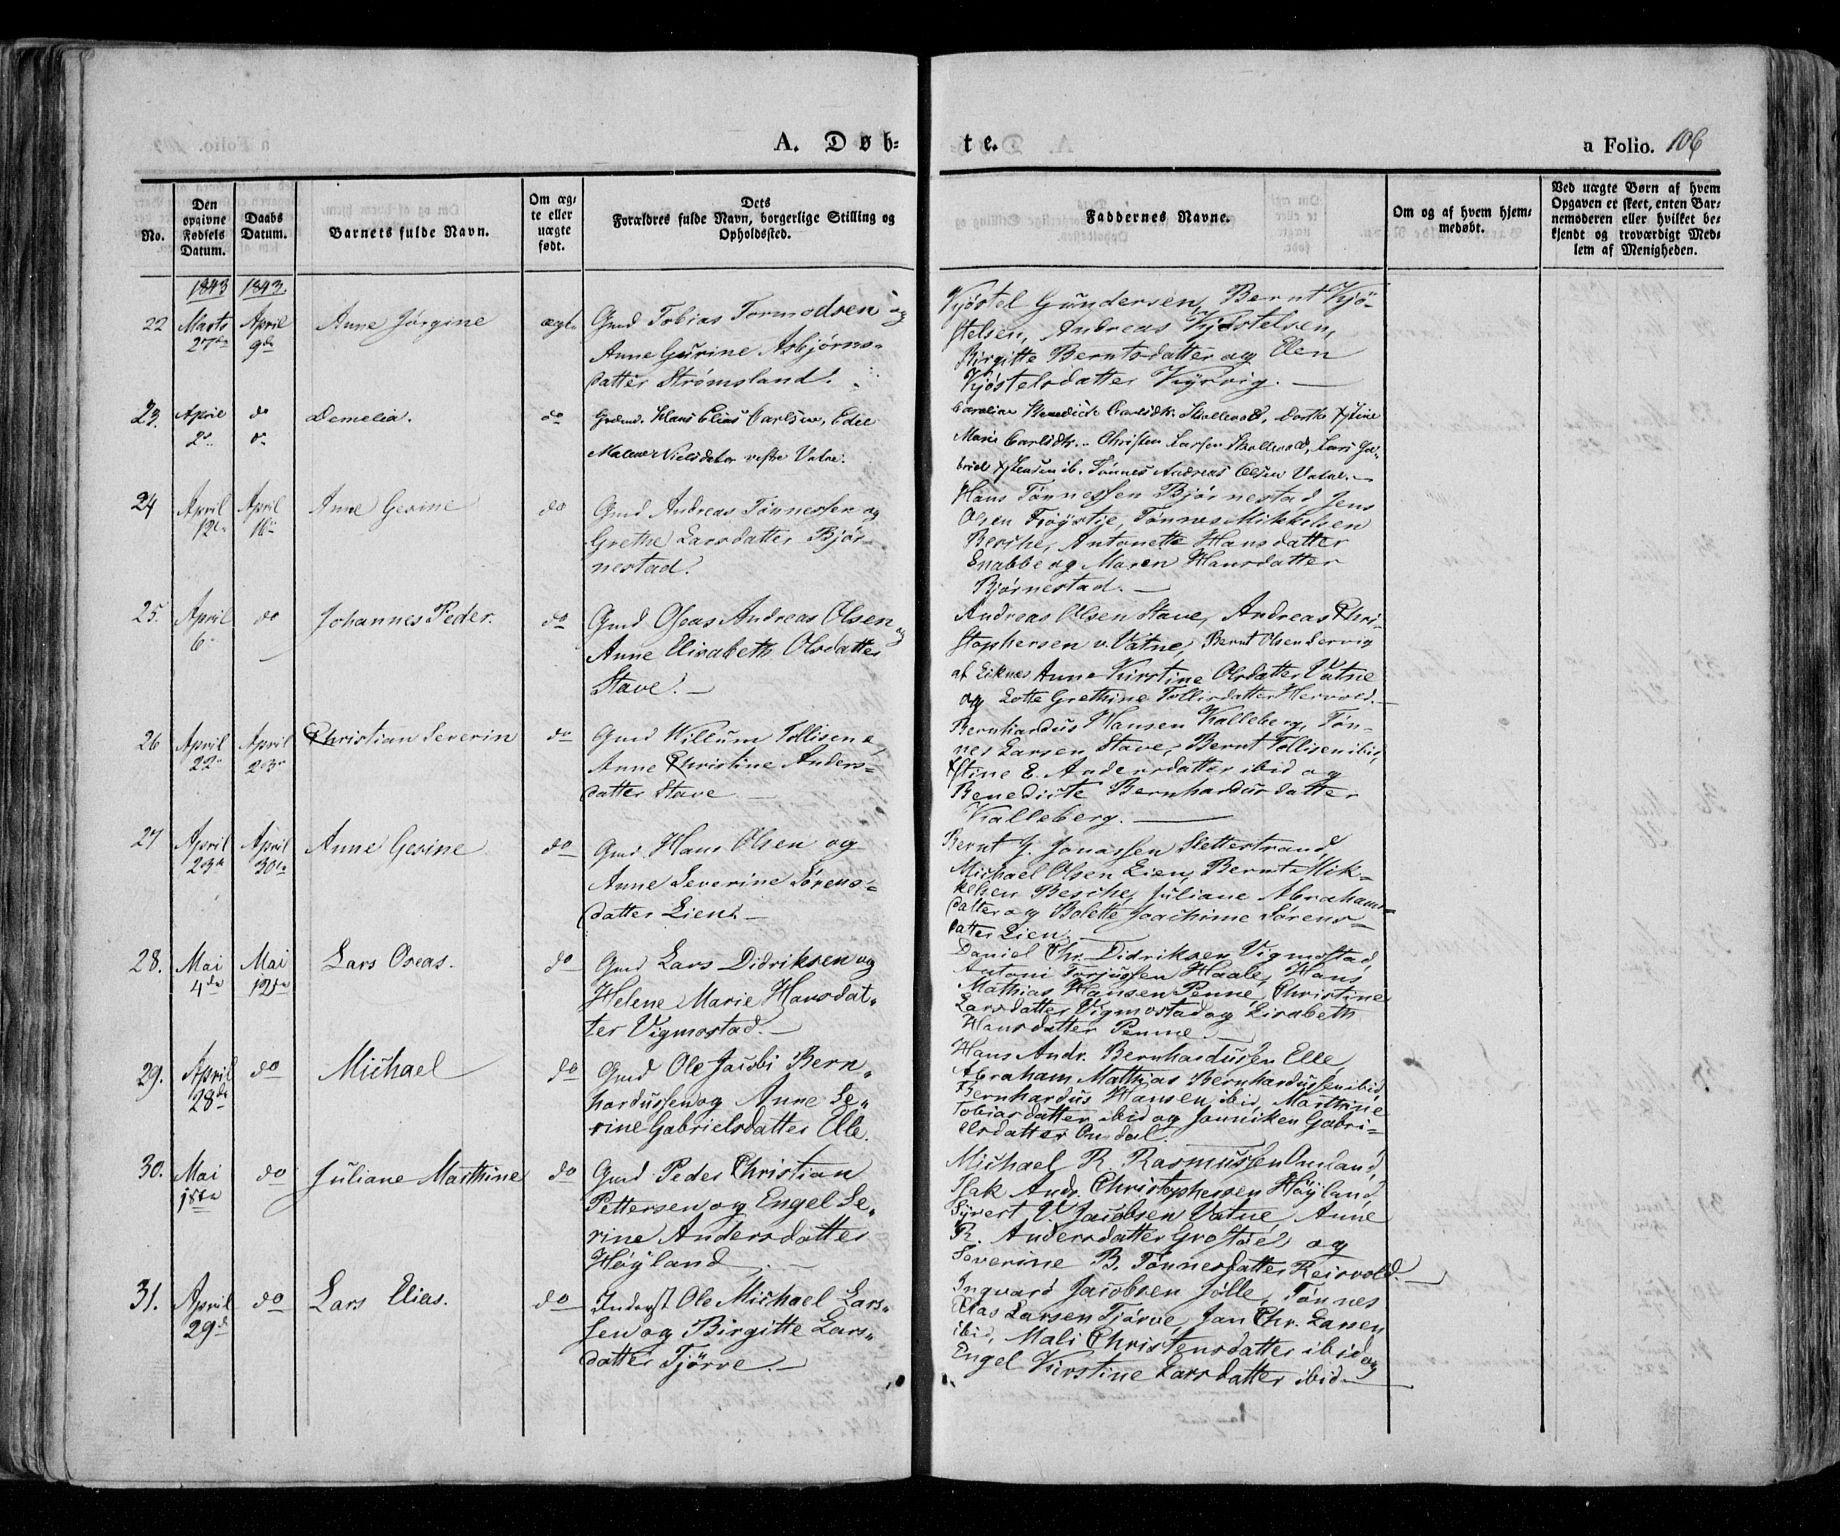 A. Døb-
te.
a Folio. 106
No.
Den
opgivne
Fødsels
Datum.
Daabs
Datum.
Barnets fulde Navn.
Om æg-
te eller
uægte
født.
Dets
Forældres fulde Navn, borgerlige Stilling og
Opholdssted.
Faddernes Navne.
Om og af hvem hjem-
medøbt.
Ved uægte Børn af hvem
Opgaven er skeet, enten Bar-
nemoderen eller hvilket be-
kjendt og troværdigt Med-
lem af Menigheden.
1843 1843.
22 Marts 27de April 9de Anne Jørgine ægte
Gmd Tobias Tormodsen og
Anne Gurine Asbjørns-
datter Strømsland.
Kjøstel Gundersen, Bernt Kjø-
stelsen, Andreas Kjøstelsen,
Birgitte Berntsdatter og Elen
Kjøstelsdatter Kyrvig.
23. April 2d do do Demelia. do
Gaardm. Hans Elias Carlsen, Edle
Malene Nielsdatter vestre Vatne.
Caroline Benedicte Carlsdtr. Skollevold, Dorthe Xstine
Marie Carlsdtr. Christen Larsen Skollevold, Lars Ga-
briel Jensen ib. Tønnes Andreas Olsen Vatne.
24 April 12te April 16de Anne Gesine do
Gmd Andreas Tønnessen og
Grethe Larsdatter Bjør-
nestad.
Hans Tønnessen Bjørnestad, Jens
Olsen Frøystje, Tønnes Mikkelsen
Besche, Antonette Hansdatter
Enabbe og Maren Hansdatter
Bjørnestad.
25. April 6 do Johannes Peder. do
Gmd Oseas Andreas Olsen og
Anne Elisabeth Olsdatter
Stave.
Andreas Olsen Stave, Andreas Chri-
stophersen v. Vatne, Bernt Olsen Dervig
af Eiknes Anne Kirstine Olsdatter Vatne
og Lotte Grethine Tollisdatter Hervold.
26 April 22 April 23de Christian Severin do
Gmd Willum Tollisen og
Anne Christine Anders-
datter Stave
Bernhardus Hansen Kalleberg, Tøn-
nes Larsen Stave, Bernt Tollisen ibid,
Xstine E. Andersdatter ibid og
Benedicte Bernhardusdatter
Kalleberg.
27 April 23de April 30te Anne Gesine do
Gmd. Hans Olsen og
Anne Severine Sørens-
datter Lien.
Bernt J. Jonassen Slettestrand,
Michael Olsen Lien, Bernt Mik-
kelsen Besche, Juliane Abrahams-
datter og Bolette Joachime Sørens-
datter Lien.
28. Mai 4de Mai 12te Lars Oseas. do
Gmd Lars Didriksen og
Helene Marie Hansdat-
ter Vigmostad.
Daniel Chr. Didriksen Vigmostad,
Antoni Torjussen Haale, Hans
Mathias Hansen Penne, Christine
Larsdatter Vigmostad og Lisabeth
Hansdatter Penne.
29. April 28de do Michael do
Gmd Ole Jacobi Bern-
hardussen og Anne Se-
rine Gabrielsdatter Elle.
Hans Andr. Bernhardussen Elle,
Abraham Mathias Bernhardussen ibid,
Bernhardus Hansen ibid, Marthine
Tobiasdatter ibid og Janniken Gabri-
elsdatter Omdal.
30. Mai 18de do Juliane Marthine do
Gmd Peder Christian
Pettersen og Engel Se-
rine Andersdatter
Høyland
Michael R. Rasmussen Omland,
Isak Andr. Christophersen Høyland,
Syvert V. Jacobsen Vatne, Anne
R. Andersdatter Grostøel og
Severine B. Tønnesdatter Reisvold.
31. April 29d do Lars Elias. do
Inderst Ole Michael Lars-
sen og Birgitte Lars-
datter Tjørve.
Ingvard Jacobsen Jølle, Tønnes
Elas Larsen Tjørve, Jan Chr. Larsen
ibid, Mali Christensdatter ibid og
Engel Kirstine Larsdatter ibid